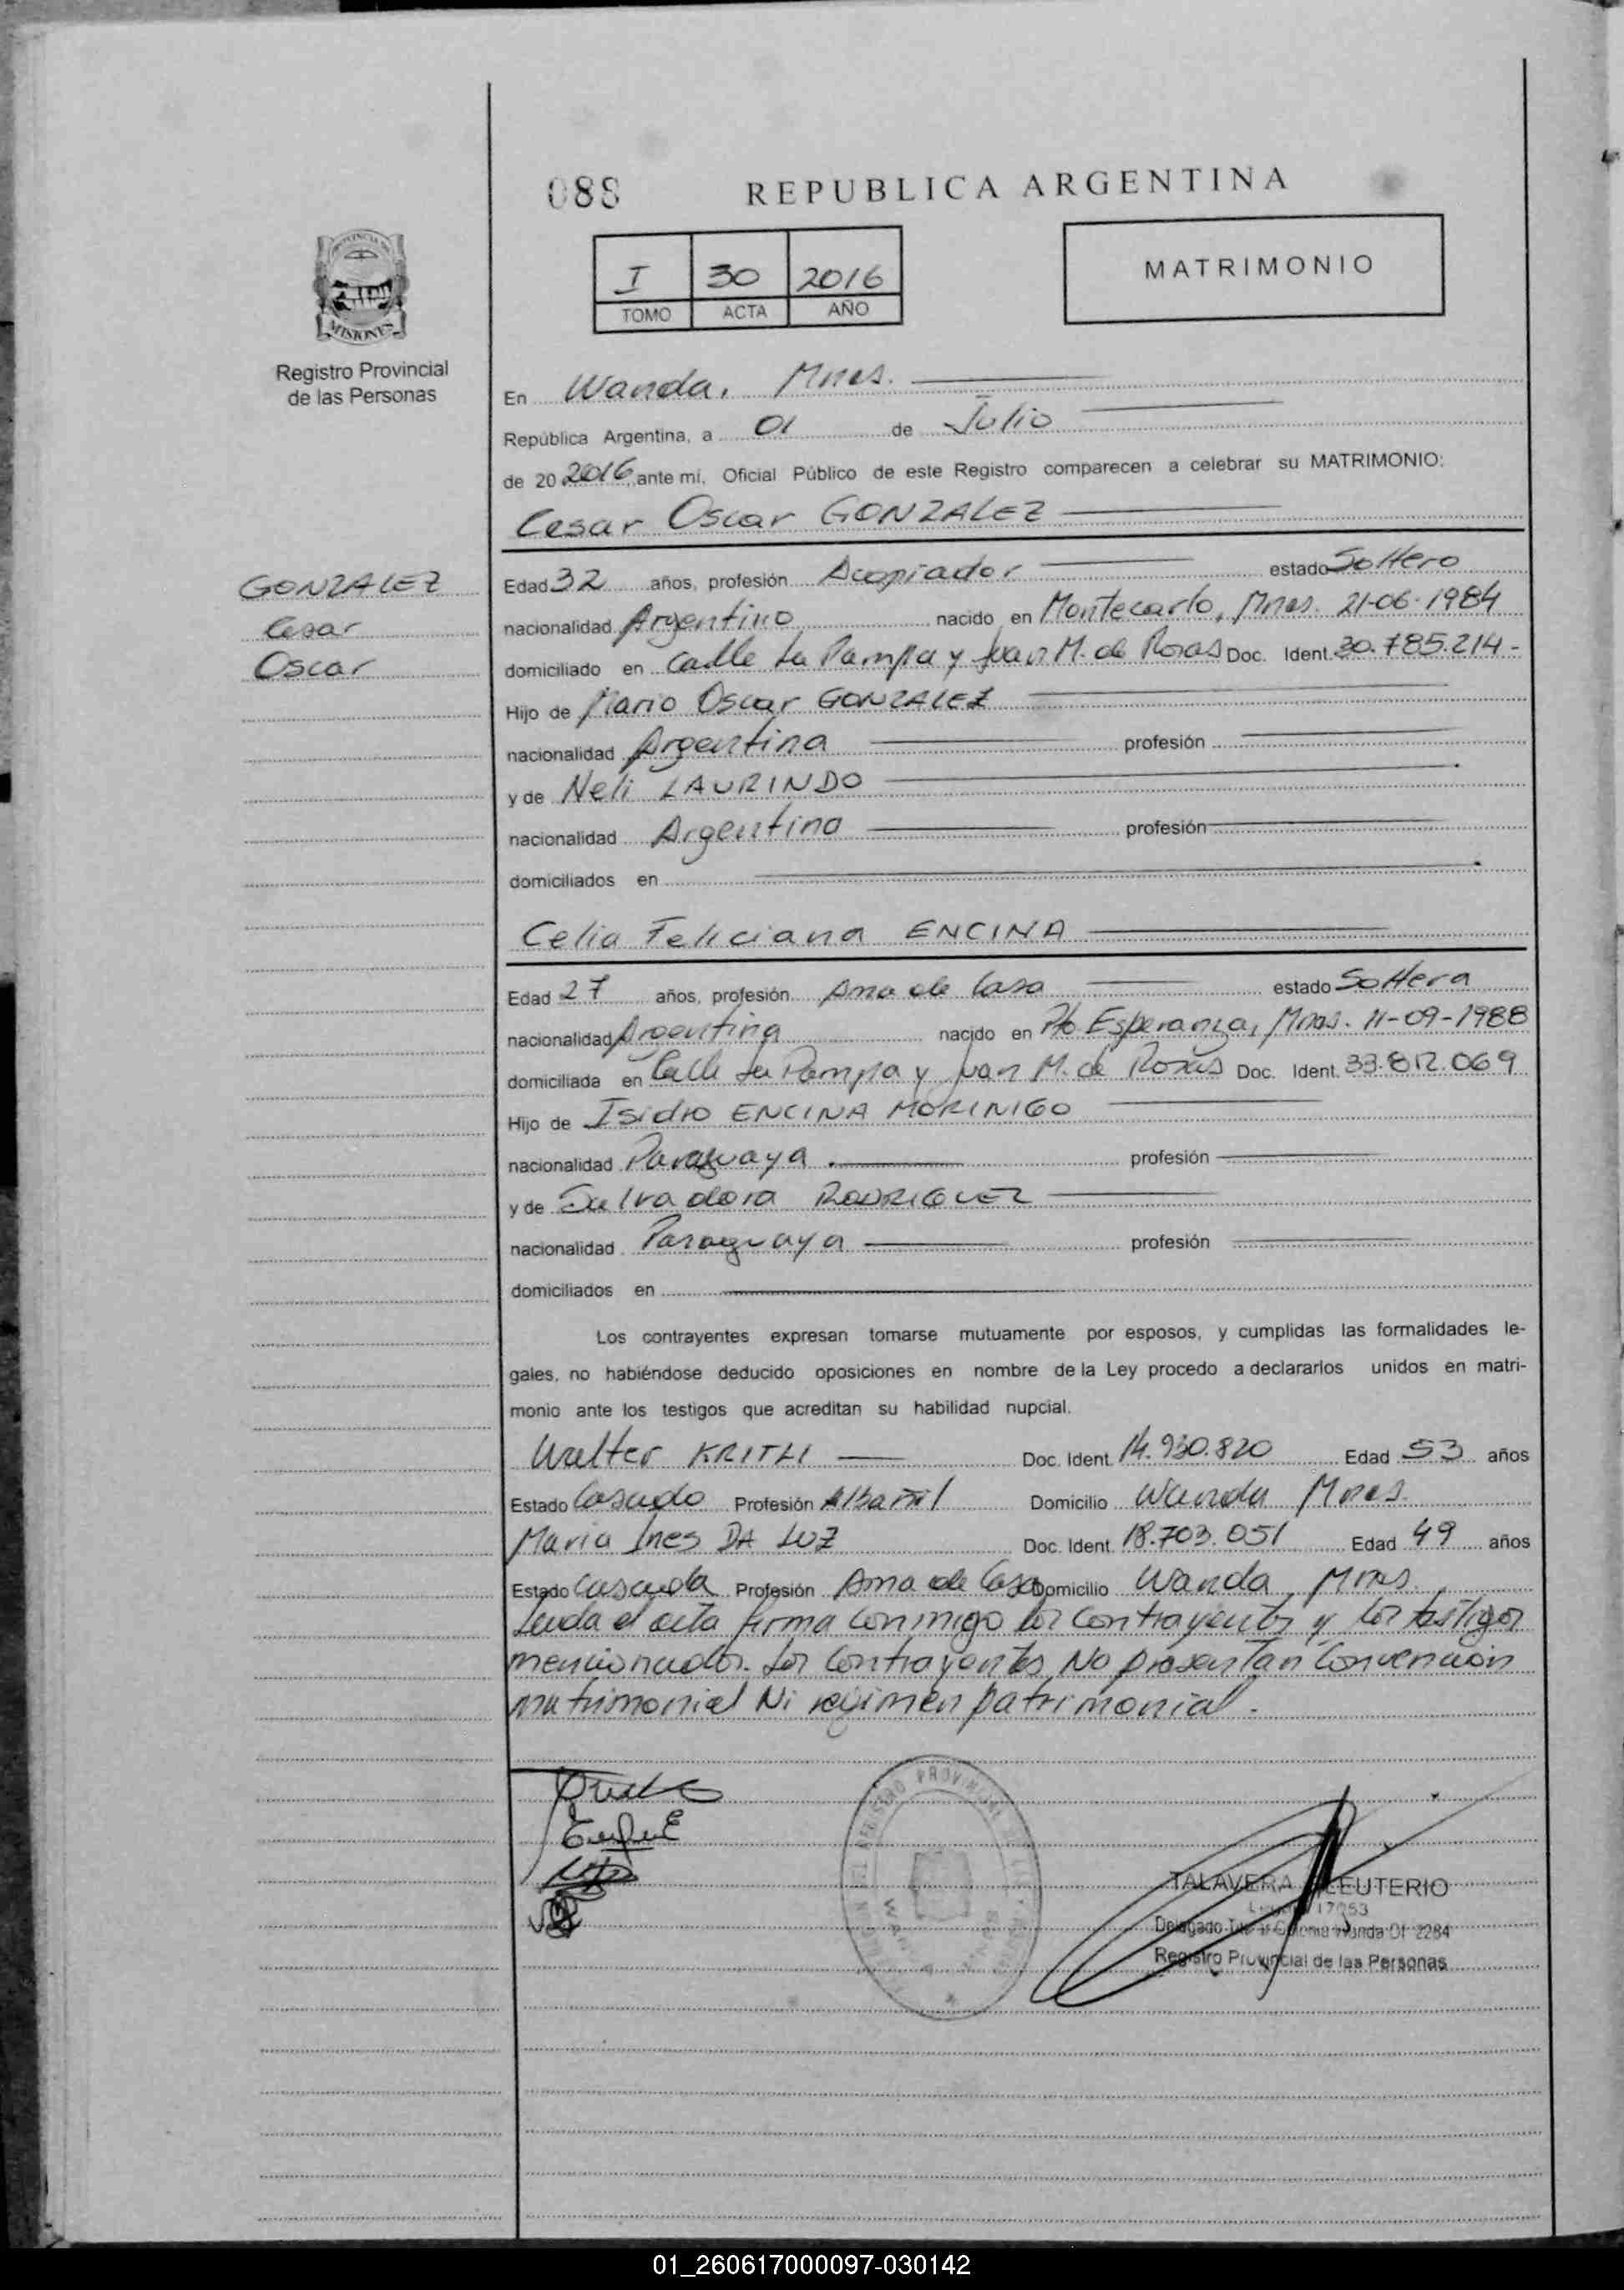 088
REPUBLICA ARGENTINA
I 30 2016
TOMO ACTA AÑO
MATRIMONIO
MISIONES
Registro Provincial
de las Personas
En Wanda, Mnes.
República Argentina, a 01 de Julio
de 20 2016, ante mí, Oficial Público de este Registro comparecen a celebrar su MATRIMONIO:
Cesar Oscar GONZALEZ
GONZALEZ
Cesar
Oscar
Edad 32 años, profesión Acopiador estado Soltero
nacionalidad Argentino nacido en Montecarlo, Mnes. 21-06-1984
domiciliado en Calle La Pampa y Juan M. de Rosas Doc. Ident. 30.785.214-
Hijo de Mario Oscar GONZALEZ
nacionalidad Argentina profesión
y de Neli LAURINDO
nacionalidad Argentina profesión
domiciliados en
Celia Feliciana ENCINA
Edad 27 años, profesión Ama de Casa estado Soltera
nacionalidad Argentina nacido en Pto Esperanza, Mnes. 11-09-1988
domiciliada en Calle La Pampa y Juan M. de Rosas Doc. Ident. 33.812.069
Hijo de Isidro ENCINA MORINIGO
nacionalidad Paraguaya profesión
y de Salvadora RODRIGUEZ
nacionalidad Paraguaya profesión
domiciliados en
Los contrayentes expresan tomarse mutuamente por esposos, y cumplidas las formalidades le-
gales, no habiéndose deducido oposiciones en nombre de la Ley procedo a declararlos unidos en matri-
monio ante los testigos que acreditan su habilidad nupcial.
Walter KRITLI Doc. Ident. 14.930.820 Edad 53 años
Estado Casado Profesión Albañil Domicilio Wanda Mnes.
Maria Ines DA LUZ Doc. Ident. 18.703.051 Edad 49 años
Estado Casada Profesión Ama de Casa Domicilio Wanda, Mnes.
Leida el acta firma conmigo los contrayentes y los testigos
mencionados. Los Contrayentes No presentan Convencion
matrimonial Ni regimen patrimonial.
TALAVERA ELEUTERIO
Registro Provincial de las Personas
01_260617000097-030142